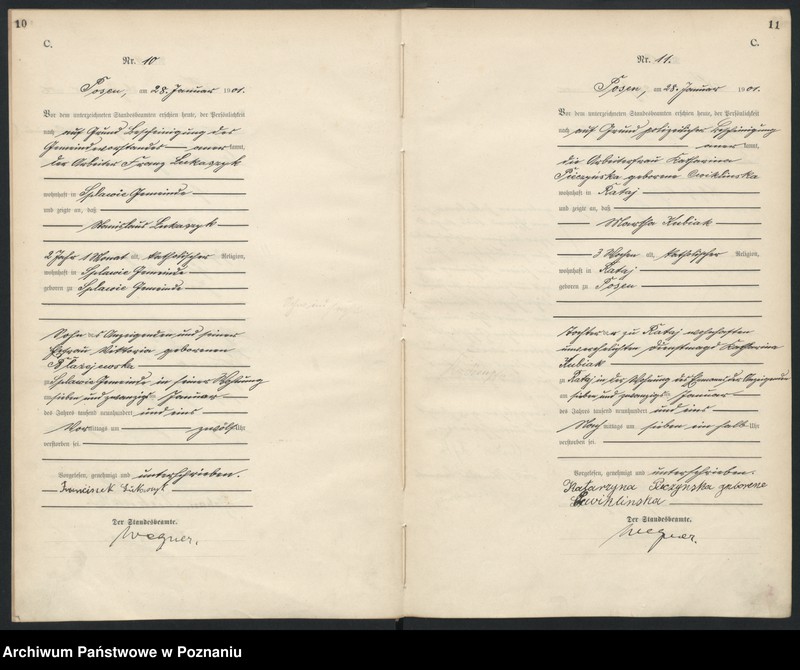 10
C.
Nr. 10
Posen, am 28. Januar 1901.
Vor dem unterzeichneten Standesbeamten erschien heute, der Persönlichkeit
nach auf Grund Bescheinigung des
Gemeindevorstandes anerkannt,
der Arbeiter Franz Lukaszyk
wohnhaft in Splawie Gemeinde
und zeigte an, daß
Stanislaus Lukaszyk
2 Jahr 1 Monat alt, katholischer Religion,
wohnhaft in Splawie Gemeinde
geboren zu Splawie Gemeinde
Sohn des Anzeigenden und seiner
Ehefrau Viktoria geborenen
Blazejewska
zu Splawie Gemeinde in seiner Wohnung
am sieben und zwanzigsten Januar
des Jahres tausend neunhundert und eins
Vormittags um zwölf Uhr
verstorben sei.
Vorgelesen, genehmigt und unterschrieben.
Franciszek
Der Standesbeamte.
Wegner.
11
C.
Nr. 11.
Posen, am 28. Januar 1901.
Vor dem unterzeichneten Standesbeamten erschien heute, der Persönlichkeit
nach auf Grund polizeilicher Bescheinigung
anerkannt,
die Arbeiterfrau Katharina
geborene Cwiklinska
wohnhaft in Rataj
und zeigte an, daß
Martha Kubiak
3 Wochen alt, katholischer Religion,
wohnhaft in Rataj
geboren zu Posen
Tochter der zu Rataj wohnhaften
unverehelichten Dienstmagd Katharina
Kubiak
zu Rataj in der Wohnung des Ehemanns der Anzeigenden
am sieben und zwanzigsten Januar
des Jahres tausend neunhundert und eins
Nachmittags um sieben ein halb Uhr
verstorben sei.
Vorgelesen, genehmigt und unterschrieben.
Katarzyna geborene
Cwiklinska
Der Standesbeamte.
Wegner.
Archiwum Państwowe w Poznaniu